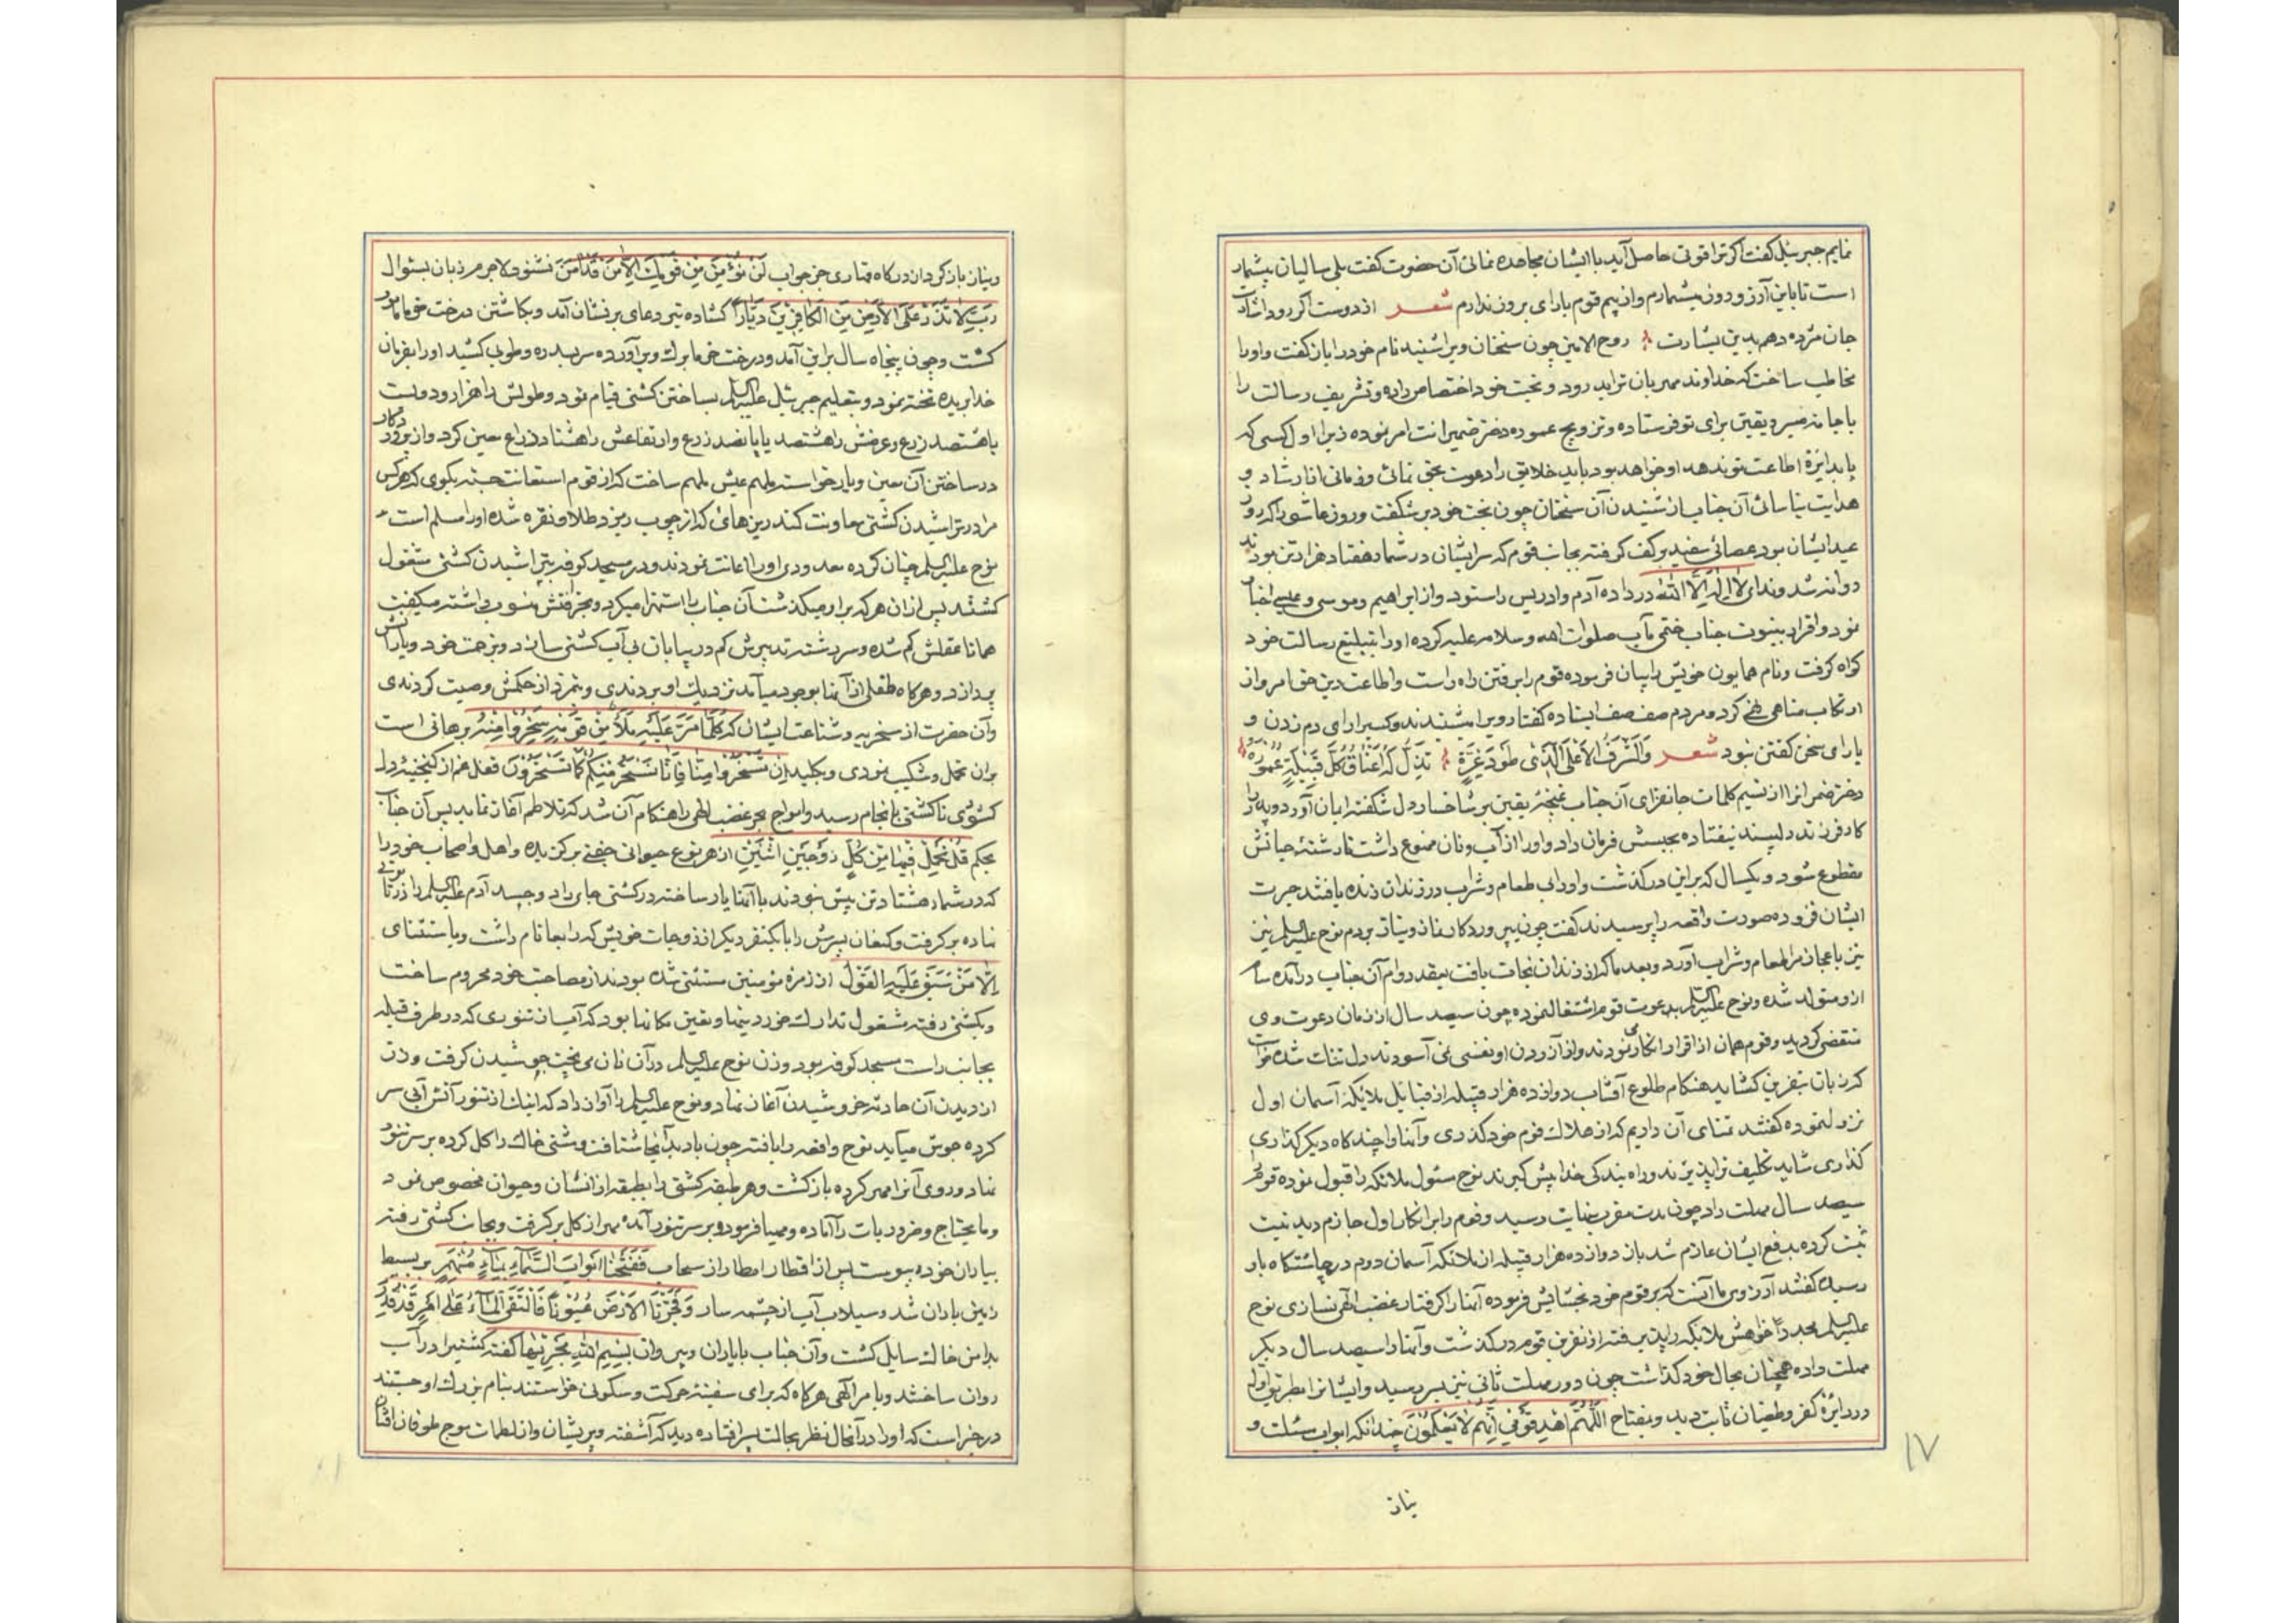 نمایم جبرئیل گفت اگر ترا قوتی حاصل آید با ایشان مجاهده نمائی آن حضرت گفت بلی سالیان بیشمار
است تا باین آرزو درون بیشمارم و از بیم قوم یارای برون ندارم شعر از دوست اگر رود اشارت
جان مژده دهم بدین بشارت روح الامین چون سخنان ویرا شنید نام خود را باز گفت و اورا
مخاطب ساخت که خداوند مهربان ترا بدرود و تحیت خود اختصاص داده و تشریف رسالت را
با جامه صبر و یقین برای تو فرستاده و تزویج عموده دختر ضمیرانت امر نموده زیرا اول کسی که
پا بدایرة اطاعت تو نهد او خواهد بود باید خلایق را دعوت بحق نمائی و زمانی از ارشاد و
هدایت نیاسائی آن جناب از شنیدن آن سخنان چون بخت خود برشکفت و روز عاشورا که روز
عید ایشان بود عصائی سفید بر کف گرفته بجانب قوم که سرایشان در شمار هفتاد هزار تن بودند
روانه شد و ندای لا اله الا الله در داده آدم و ادریس را ستود و از ابراهیم و موسی و عیسی اخبار
نمود و اقرار بنبوت جناب ختمی مآب صلوات الله و سلامه علیه کرده او را بتبلیغ رسالت خود
گواه گرفت و نام همایون خویش را بیان فرموده قوم را برفتن راه راست و اطاعت دین حق امر و از
ارتکاب مناهی نهی کرد و مردم صف صف ایستاده گفتار ویرا میشنیدند و کسیرا رای دم زدن و
یارای سخن گفتن نبود شعر والشرف الاعلی الذی طود عزة تذل له اعناق کل قبیلة عموده
دختر ضمرانرا از نسیم کلمات جانفزای آن جناب غنچهٔ یقین بر شاخسار دل شکفته ایمان آورد و پدر را
کار فرزند دلپسند نیفتاده بحبسش فرمان داد و اورا از آب و نان ممنوع داشت تا رشتهٔ حیاتش
مقطوع شود و یکسال که براین درگذشت و اورا بی طعام و شراب در زندان زنده یافتند حیرت
ایشان فزوده صورت واقعه را پرسیدند گفت چون بپروردگار نماز و نیاز بردم نوح علیه السلم نیز
نیز باعجاز مرا طعام و شراب آورد و بعد ما که از زندان نجات یافت بعقد دوام آن جناب درآمده سام
ازو متولد شده و نوح علیه السلم بدعوت قوم اشتغال نموده چون سیصد سال از زمان دعوت وی
منقضی گردید و قوم همان از اقرار انکار نمودند و از آزردن او نفسی نمی آسودند دل تنگ شده خواست
که زبان بنفرین گشاید هنگام طلوع آفتاب دوازده هزار قبیله از قبایل ملائکهٔ آسمان اول
نزول نموده گفتند تمنای آن داریم که از هلاک قوم خود گذری و آنها را چندگاه دیگر گذاری
گذاری شاید تکلیف ترا پذیرند و راه بندگی خدا پیش گیرند نوح مسئول ملائکه را قبول نموده قوم را
سیصد سال مهلت داد چون مدت مقرر بنهایت رسید و قوم را بر انکار اول جازم دید نیت
ثبت کرده بدفع ایشان عازم شد باز دوازده هزار قبیله از ملائکه آسمان دوم در چاشتگاه باو
رسیده گفتند آرزوی ما آنست که بر قوم خود بخشایش فرموده آنها را گرفتار غضب الهی نسازی نوح
علیه السلم مجدداً خواهش ملائکه را پذیرفته از نفرین قوم درگذشت و آنها را سیصد سال دیگر
مهلت داده همچنان بحال خود گذاشت چون دور مهلت ثانی نیز بسر رسید و ایشانرا بطریق اول
در دایرهٔ کفر و طغیان ثابت دید و بمفتاح اللهم اهد قومی انهم لا یعلمون چندانکه ابواب مسئلت و
نیاز
۱۷
ونیاز باز کرد از درگاه قهاری جز جواب لن یؤمن من قومک الا من قد آمن نشنود لاجرم زبان بسئوال
رب لا تذر علی الارض من الکافرین دیاراً گشاده تیر دعای بر نشان آمد و بکاشتن درخت خرما مأمور
گشت و چون پنجاه سال براین آمد و درخت خرما برگ و بر آورده سر بسدره و طوبی کشید اورا بفرمان
خدا بریده تخته نمود و بتعلیم جبرئیل علیه السلم بساختن کشتی قیام نمود و طولش را هزار و دویست
یا هشتصد زرع و عرضش را هشتصد یا پانصد زرع و ارتفاعش را هشتاد ذراع معین کرد و از پروردگار
در ساختن آن معین و یار خواسته ملهم غیبش ملهم ساخت که از قوم استعانت جسته بگوی که هر کس
مرا در تراشیدن کشتی معاونت کند ریزهائی که از چوب ریزد طلا و نقره شده اورا مسلم است
نوح علیه السلم چنان کرده معدودی اورا اعانت نمودند و در مسجد کوفه بتراشیدن کشتی مشغول
گشتند پس از آن هر که براو میگذشت آن جناب را استهزا میکرد و بخرافتش منسوب داشته میگفت
همانا عقلش گم شده و سررشته تدبیرش گم در بیابان بی آب کشتی سازد و بزحمت خود و یارانش
پردازد و هرگاه طفلی از آنها بوجود میآمد نزدیک او بردندی و بتمرد از حکمش وصیت کردندی
و آن حضرت از سخریه و شناعت ایشان که کلما مر علیه ملأ من قومه سخروا منه برهانی است
بران تحمل و شکیب نمودی و بکلید ان تسخروا منا فانا نسخر منکم کما تسخرون قفل غم از گنجینهٔ دل
گشودی تا کشتی بانجام رسید و امواج بحر غضب الهی را هنگام آن شد که تلاطم آغاز نماید پس آن جناب
بحکم قلنا احمل فیها من کل زوجین اثنین از هر نوع حیوانی جفتی برگزیده و اهل و اصحاب خود را
که در شمار هشتاد تن بیش نبودند با آنها یار ساخته در کشتی جای داد و جسد آدم علیه السلم را در تابوتی
نهاده برگرفت و کنعان پسرش را با یکنفر دیگر از زوجات خویش که رابعا نام داشت و باستثنای
الا من سبق علیه القول از زمرهٔ مؤمنین مستثنی شده بودند از مصاحبت خود محروم ساخت
و بکشتی رفته مشغول تدارک خوردنیها و تعیین مکانها بود که آب از تنوری که در طرف قبله
بجانب راست مسجد کوفه بود و زن نوح علیه السلم در آن نان می پخت جوشیدن گرفت و زن
از دیدن آن حادثه خروشیدن آغاز نهاد و نوح علیه السلم را آواز داد که اینک از تنور آتش آبی سر
کرده جوش میآید نوح واقعه را یافته چون باد بدآنجا شتافت و مشتی خاک را گل کرده بر سر تنور
نهاد و روی آنرا مهر کرده بازگشت و هر طبقهٔ کشتی را بطبقه از انسان و حیوان مخصوص نمود
و مایحتاج و ضروریات را آماده و مهیا فرمود و بر سر تنور آمده مهر از گل برگرفت و بجانب کشتی رفته
بیاران خود پیوست پس از اقطار امطار از سحاب ففتحنا ابواب السماء بماء منهمر بر بسیط
زمین باران شد و سیلاب آب از چشمه سار و فجرنا الارض عیونا فالتقی الماء علی امر قد قدر
بدامن خاک سایل گشت و آن جناب با یاران و پیروان بسم الله مجریها گفته کشتیرا در آب
روان ساختند و بامر الهی هرگاه که برای سفینه حرکت و سکونی خواستند بنام بزرگ او جستند
در خبر است که اورا در آنحال نظر بحالت پسر افتاده دید که آشفته و پریشان و از لطمات موج طوفان افتان